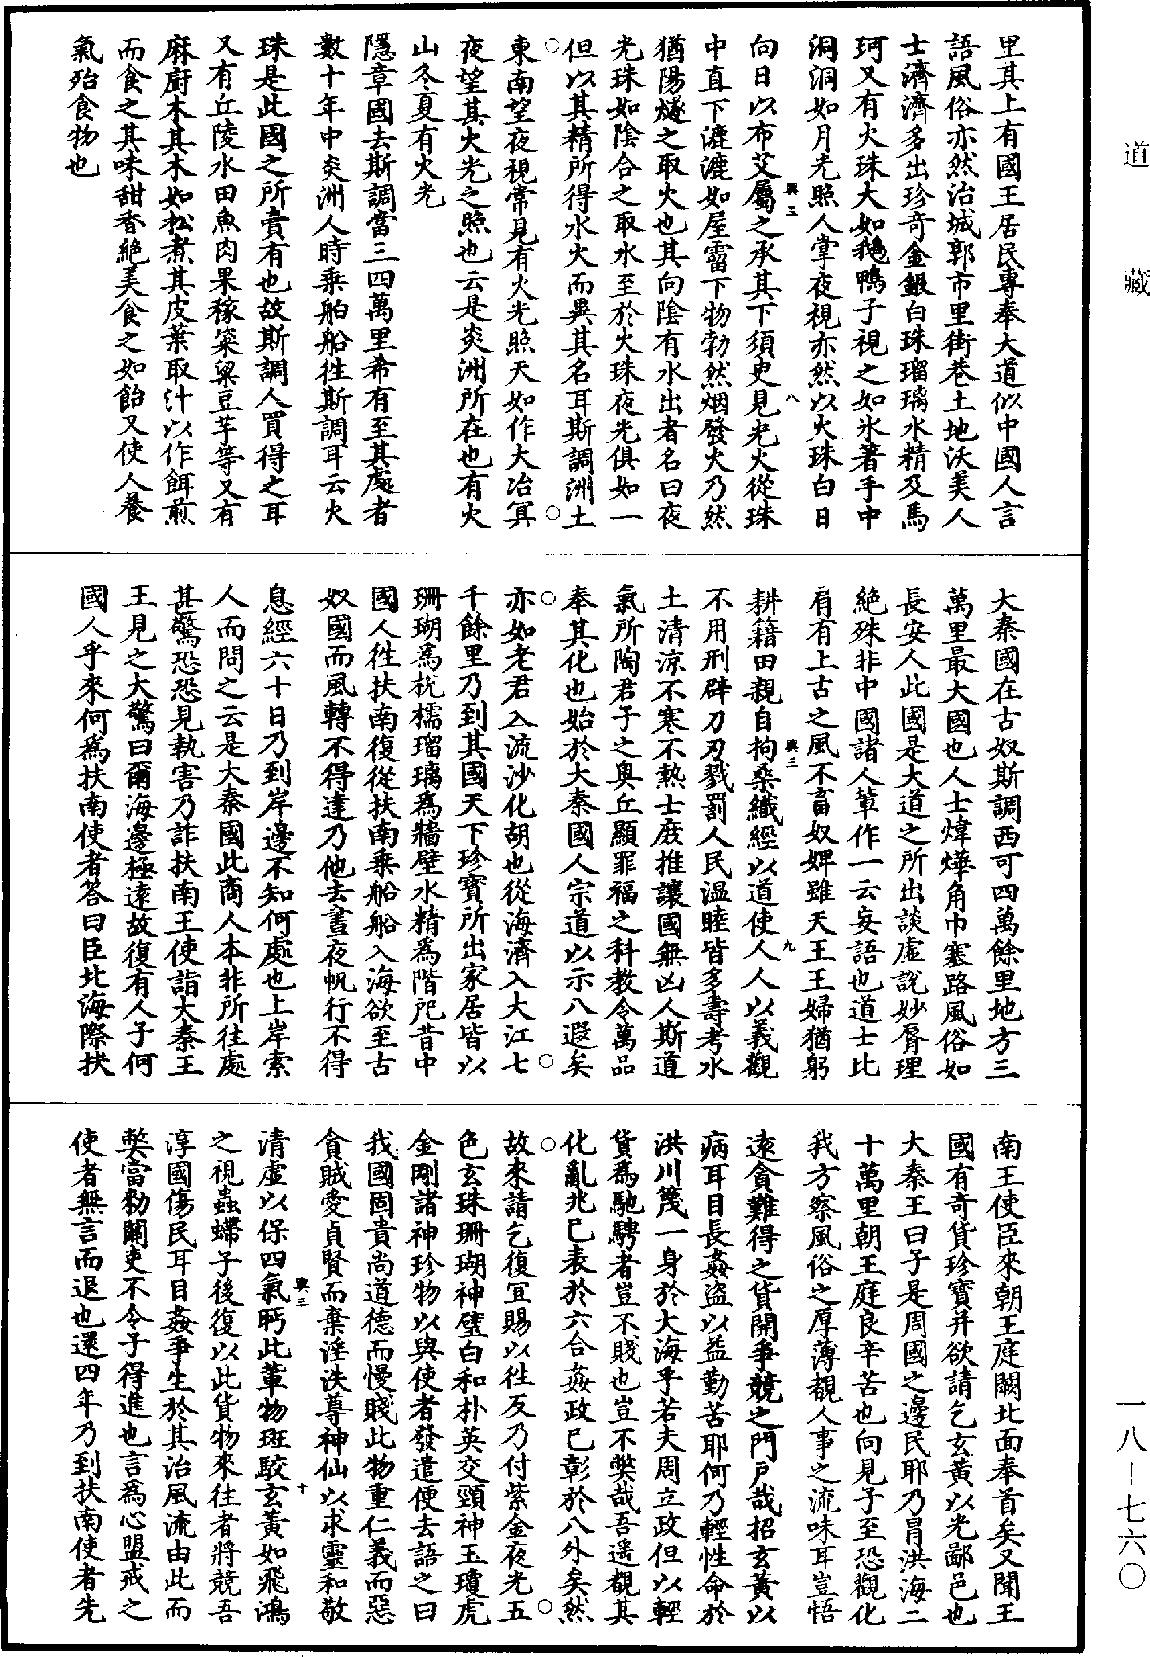 道藏
里其上有國王居民專奉大道似中國人言
語風俗亦然治城郭市里街巷土地沃美人
士濟濟多出珍奇金銀白珠瑠璃水精及馬
珂又有火珠大如鵝鴨子視之如氷著手中
洞洞如月光照人掌夜視亦然以火珠白日
向日以布艾屬之承其下須臾見光火從珠
中直下漉漉如屋霤下物勃然烟發火乃然
猶陽燧之取火也其向陰有水出者名曰夜
光珠如陰合之取水至於火珠夜光俱如一
但以其精所得水火而異其名耳斯調洲土
東南望夜視常見有火光照天如作大冶冥
夜望其火光之照也云是炎洲所在也有火
山冬夏有火光
隱章國去斯調當三四萬里希有至其處者
數十年中炎洲人時乘舶船往斯調耳云火
珠是此國之所賣有也故斯調人買得之耳
又有丘陵水田魚肉果稼粢粱豆芋等又有
麻廚木其木如松煮其皮葉取汁以作餌煎
而食之其味甜香絶美食之如飴又使人養
氣殆食物也
大秦國在古奴斯調西可四萬餘里地方三
萬里最大國也人士煒燁角巾塞路風俗如
長安人此國是大道之所出談虛說妙脣理
絶殊非中國諸人軰作一云妄語也道士比
肩有上古之風不畜奴婢雖天王王婦猶躬
耕籍田親自拘桑織經以道使人人以義觀
不用刑辟刀刃戮罰人民溫睦皆多壽考水
土清涼不寒不熱士庶推讓國無凶人斯道
氣所陶君子之奥丘顯罪福之科教令萬品
奉其化也始於大秦國人宗道以示八遐矣
亦如老君入流沙化胡也從海濟入大江七
千餘里乃到其國天下珍寶所出家居皆以
珊瑚爲梲櫺瑠璃爲牆壁水精爲階戺昔中
國人往扶南復從扶南乘船船入海欲至古
奴國而風轉不得達乃他去晝夜帆行不得
息經六十日乃到岸邊不知何處也上岸索
人而問之云是大秦國此商人本非所往處
甚驚恐恐見執害乃詐扶南王使詣大秦王
王見之大驚曰爾海邊極遠故復有人子何
國人乎來何爲扶南使者答曰臣北海際扶
南王使臣來朝王庭闕北面奉首矣又聞王
國有奇貨珍寶并欲請乞玄黃以光鄙邑也
大秦王曰子是周國之邊民耶乃冒洪海二
十萬里朝王庭良辛苦也向見子至恐觀化
我方察風俗之厚薄覩人事之流味耳豈悟
遠貪難得之貨開爭競之門戶哉招玄黃以
病耳目長姦盜以益勤苦耶何乃輕性命於
洪川蔑一身於大海乎若夫周立政但以輕
貨爲馳騁者豈不賤也豈不樊哉吾遥覩其
化亂兆已表於六合姦政已彰於八外矣然
故來請乞復宜賜以往反乃付紫金夜光五
色玄珠珊瑚神璧白和朴英交頸神玉瓊虎
金剛諸神珍物以與使者發遣便去語之曰
我國固貴尚道德而慢賤此物重仁義而惡
貪賊愛貞賢而棄淫泆尊神仙以求靈和敬
清虛以保四氣眄此軰物斑駮玄黃如飛鴻
之視蟲蟒子後復以此貨物來往者將競吾
淳國傷民耳目姦爭生於其治風流由此而
獘當勑關吏不令子得進也言爲心盟戒之
使者無言而退也還四年乃到扶南使者先
興三
八
興三
九
興三
十
一八-七六〇